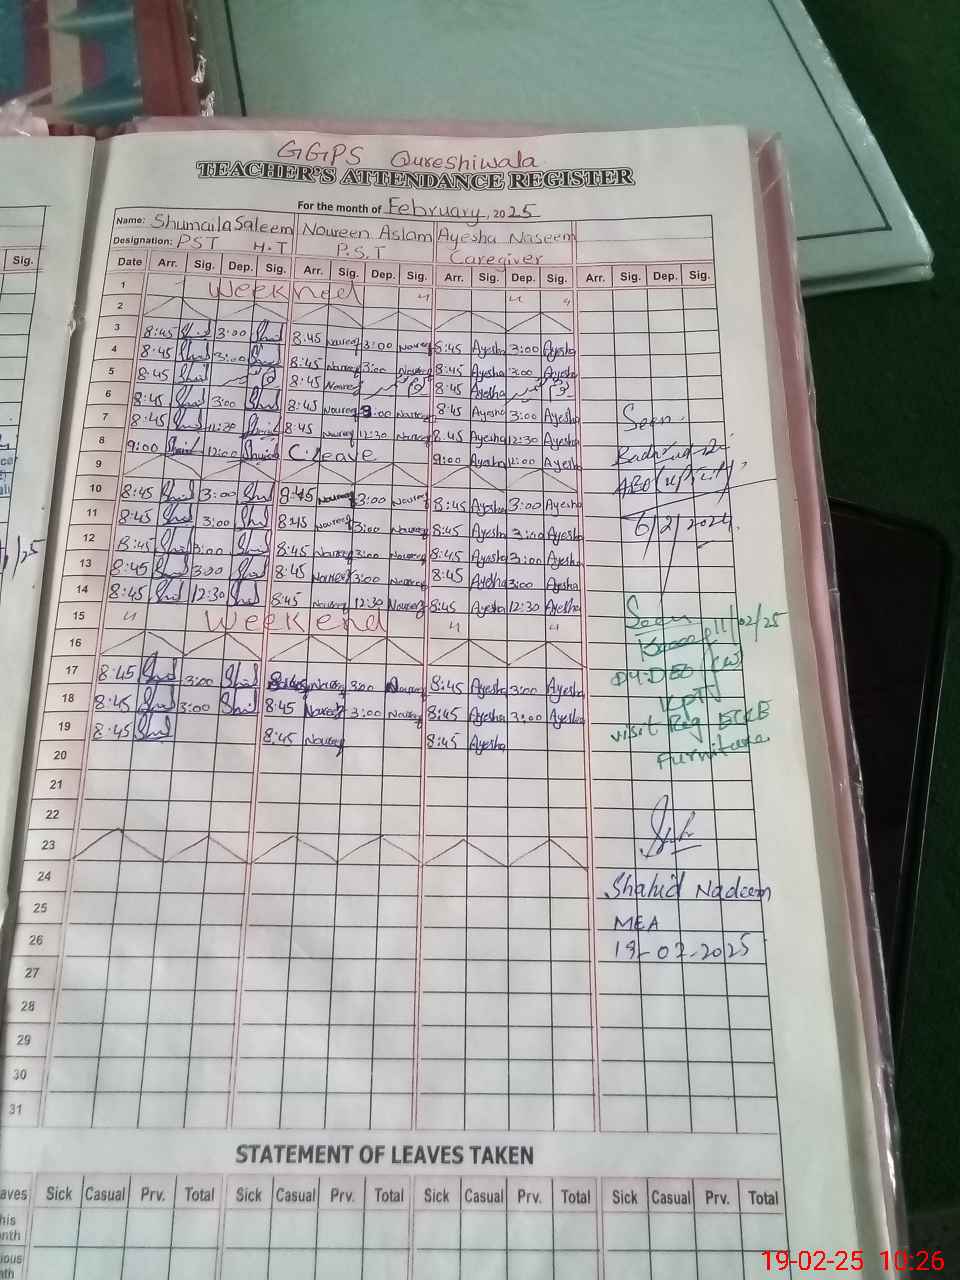 GGPS Qureshiwala
TEACHER'S ATTENDANCE REGISTER
For the month of February, 2025
Name: Shumaila Saleem Noureen Aslam Ayesha Naseem
Designation: PST H.T P.S.T Caregiver
Sig. Date Arr. Sig. Dep. Sig. Arr. Sig. Dep. Sig. Arr. Sig. Dep. Sig. Arr. Sig. Dep. Sig.
1 Weekend " " "
2
3 8:45 3:00 8:45 3:00 8:45 Ayesha 3:00 Ayesha
4 8:45 3:00 8:45 3:00 8:45 Ayesha 3:00 Ayesha
5 8:45 8:45 8:45 Ayesha
6 8:45 3:00 8:45 3:00 8:45 Ayesha 3:00 Ayesha
7 8:45 12:30 8:45 12:30 8:45 Ayesha 12:30 Ayesha
8 9:00 12:00 C.leave 9:00 Ayesha 12:00 Ayesha
9
10 8:45 3:00 8:45 3:00 8:45 Ayesha 3:00 Ayesha
11 8:45 3:00 8:45 3:00 8:45 Ayesha 3:00 Ayesha
12 8:45 3:00 8:45 3:00 8:45 Ayesha 3:00 Ayesha
13 8:45 3:00 8:45 3:00 8:45 Ayesha 3:00 Ayesha
14 8:45 12:30 8:45 12:30 8:45 Ayesha 12:30 Ayesha
15 " Weekend " "
16
17 8:45 3:00 8:45 3:00 8:45 Ayesha 3:00 Ayesha
18 8:45 3:00 8:45 3:00 8:45 Ayesha 3:00 Ayesha
19 8:45 8:45 8:45 Ayesha
20
21
22
23
24
25
26
27
28
29
30
31
Seen
6/2/2024
Seen
11/02/25
DY:DEO (W)
KPT
visit Reg ECCE
Furniture
Shahid Nadeem
MEA
19-02-2025
STATEMENT OF LEAVES TAKEN
Sick Casual Prv. Total Sick Casual Prv. Total Sick Casual Prv. Total Sick Casual Prv. Total
19-02-25 10:26